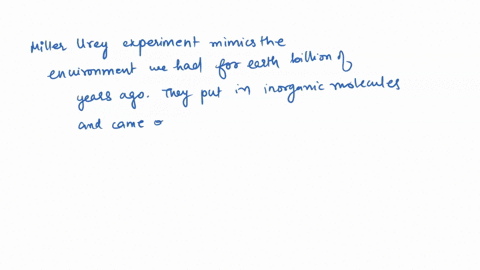 Miller Urey experiment mimics the
environment we had for earth billion of
years ago. They put in inorganic molecules
and came o